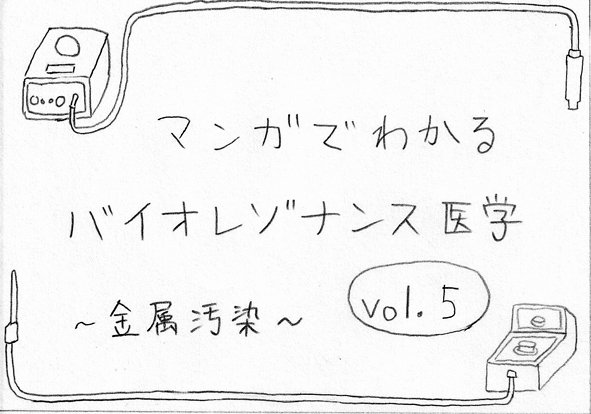 マンガでわかる
バイオレゾナンス医学
～金属汚染～
vol.5